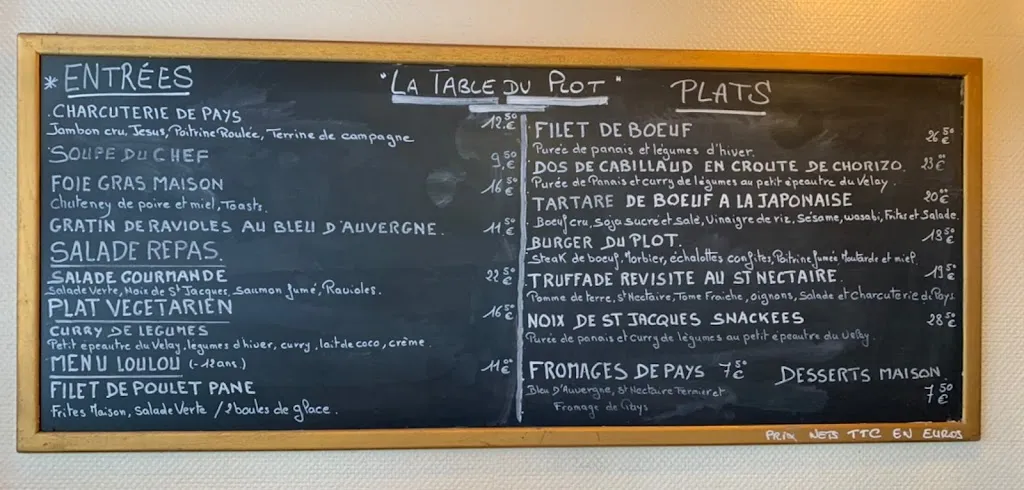 "LA TABLE DU PLOT"
* ENTRÉES
CHARCUTERIE DE PAYS 12.50€
Jambon cru, Jesus, Poitrine Roulée, Terrine de campagne
SOUPE DU CHEF 9,50€
FOIE GRAS MAISON 16.50€
Chuteney de poire et miel, Toasts.
GRATIN DE RAVIOLES AU BLEU D'AUVERGNE. 11.50€
SALADE REPAS.
SALADE GOURMANDE 22.50€
Salade Verte, Noix de St Jacques, Saumon fumé, Ravioles.
PLAT VEGETARIEN 16.50€
CURRY DE LEGUMES
Petit epeautre du Velay, légumes d'hiver, curry, lait de coco, crème.
MENU LOULOU (-12ans.) 11.00€
FILET DE POULET PANE
Frites Maison, Salade Verte / 2 boules de glace.
PLATS
FILET DE BOEUF 26.50€
Purée de panais et légumes d'hiver.
DOS DE CABILLAUD EN CROUTE DE CHORIZO. 23€
Purée de Panais et curry de légumes au petit épeautre du Velay.
TARTARE DE BOEUF A LA JAPONAISE 20€
Boeuf cru, soja sucré et salé, Vinaigre de riz, Sésame, wasabi, Frites et Salade.
BURGER DU PLOT. 18.50€
Steak de boeuf, Morbier, échalottes confites, Poitrine fumée Moutarde et miel.
TRUFFADE REVISITE AU ST NECTAIRE. 19.50€
Pomme de terre, St Nectaire, Tome Fraiche, oignons, Salade et Charcuterie de Pays
NOIX DE ST JACQUES SNACKEES 28.50€
Purée de panais et curry de légumes au petit épeautre du Velay.
FROMAGES DE PAYS 7.50€
Bleu D'Auvergne, St Nectaire Fermier et
Fromage de Pays
DESSERTS MAISON.
7.50€
PRIX NETS TTC EN EUROS